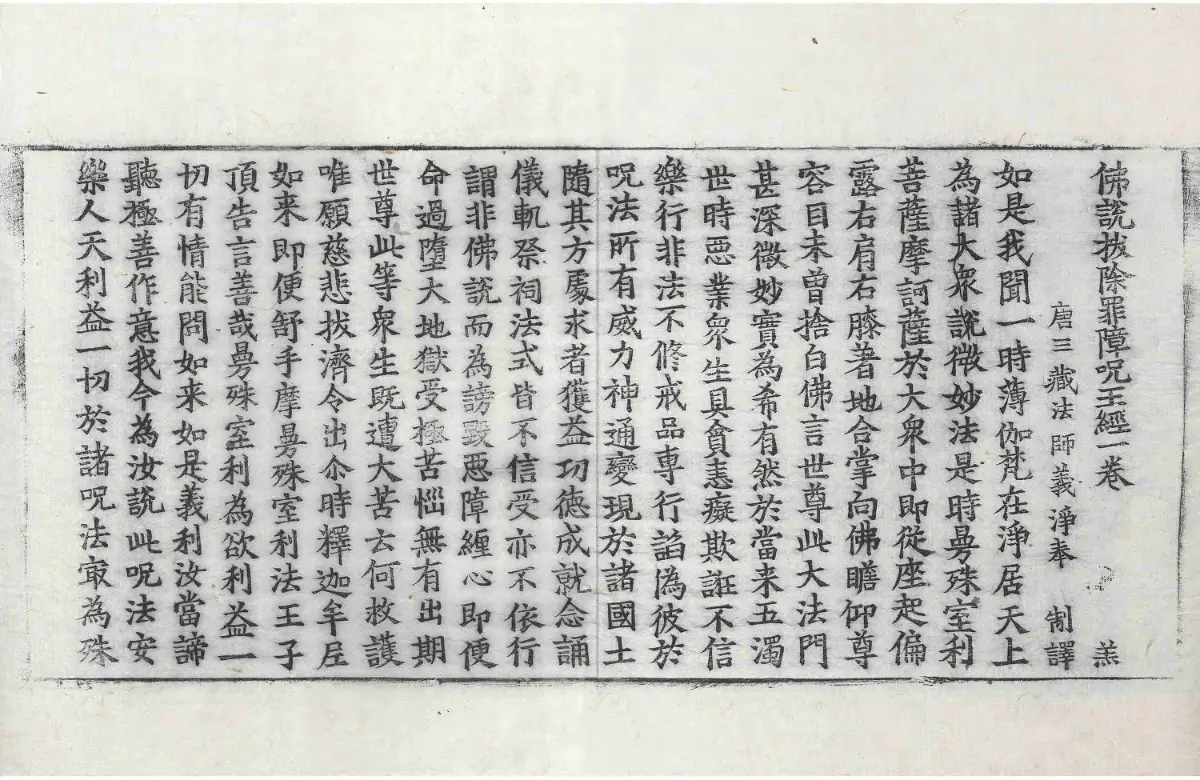 佛說拔除罪障呪王經一卷 羔
唐三藏法師義淨奉 制譯
如是我聞一時薄伽梵在淨居天上
為諸大衆說微妙法是時曼殊室利
菩薩摩訶薩於大衆中即從座起偏
露右肩右膝著地合掌向佛瞻仰尊
容目未曾捨白佛言世尊此大法門
甚深微妙實為希有然於當来五濁
世時惡業衆生具貪恚癡欺誑不信
樂行非法不修戒品專行諂偽彼於
呪法所有威力神通變現於諸國土
隨其方處求者獲益功德成就念誦
儀軌祭祠法式皆不信受亦不依行
謂非佛說而為謗毀惡障纏心即便
命過墮大地獄受極苦惱無有出期
世尊此等衆生既遭大苦云何救護
唯願慈悲拔濟令出尒時釋迦牟尼
如来即便舒手摩曼殊室利法王子
頂告言善哉曼殊室利為欲利益一
切有情能問如来如是義利汝當諦
聽極善作意我今為汝說此呪法安
樂人天利益一切於諸呪法㝡為殊